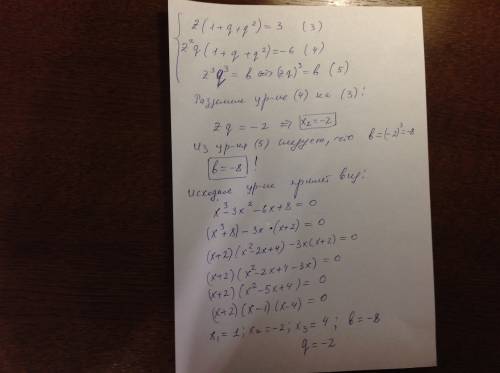 z(1+q+q²)=3 (3)
z²q(1+q+q²)=-6 (4)
z³q³=b ⇔ (zq)³=b (5)
Разделим ур-ие (4) на (3):
zq=-2 ⇒ x₂=-2
Из ур-ия (5) следует, что b=(-2)³=-8
b=-8 !
Исходное ур-ие примет вид:
x³-3x²-6x+8=0
(x³+8)-3x·(x+2)=0
(x+2)(x²-2x+4)-3x(x+2)=0
(x+2)(x²-2x+4-3x)=0
(x+2)(x²-5x+4)=0
(x+2)(x-1)(x-4)=0
x₁=1; x₂=-2; x₃=4; b=-8
q=-2